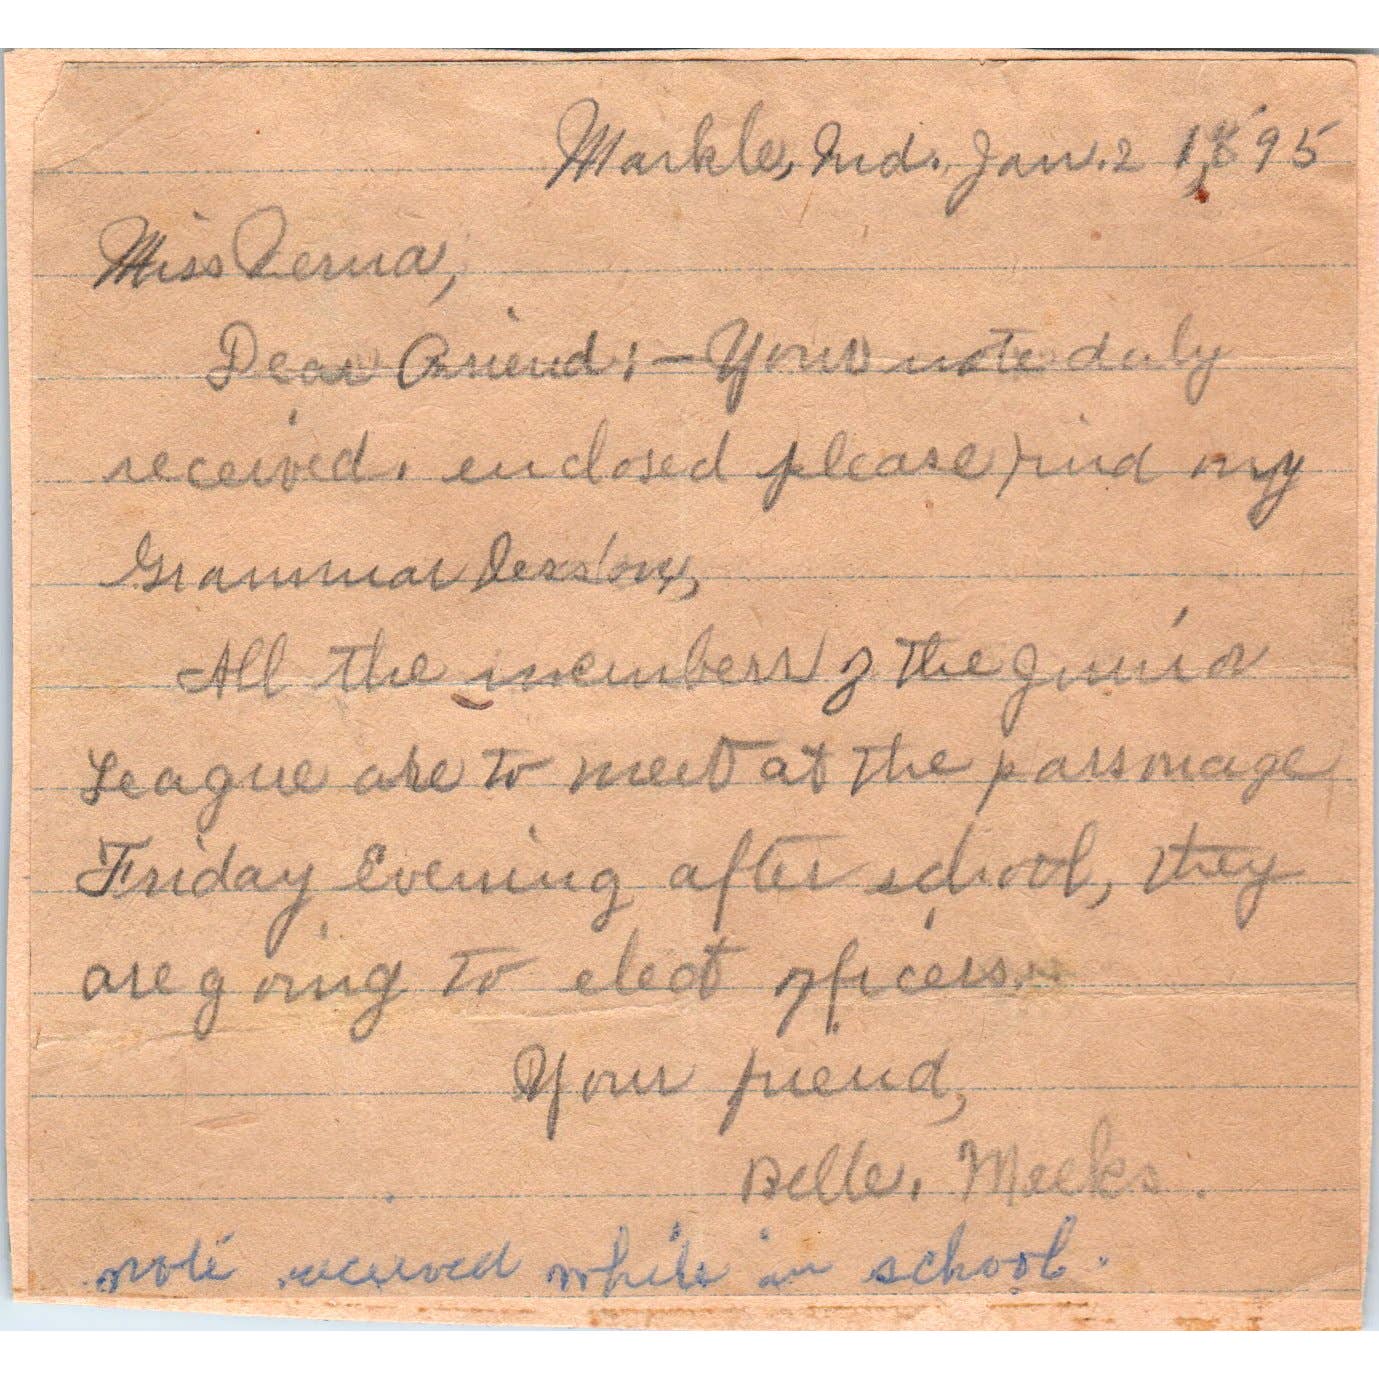 Markle, Ind. Jan. 2 1895
Miss Verna,
Dear Friend; — Your note duly
received. enclosed please find my
Grammar Lesson,
All the members of the Junior
League are to meet at the parsonage
Friday Evening after school, they
are going to elect officers.
Your friend,
Belle. Meeks.
note received while in school.